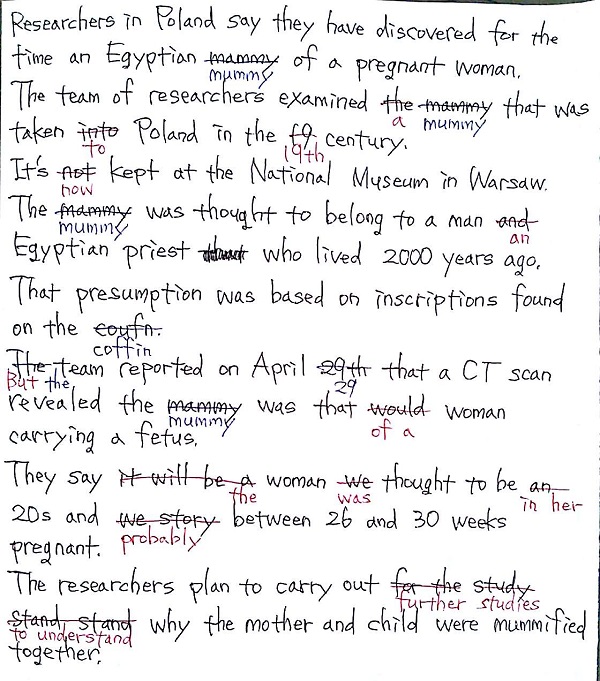 Researchers in Poland say they have discovered for the
time an Egyptian mammy of a pregnant woman.
mummy
The team of researchers examined the mammy that was
a mummy
taken into Poland in the f9 century.
to 19th
It's not kept at the National Museum in Warsaw.
now
The mammy was thought to belong to a man and
mummy an
Egyptian priest who lived 2000 years ago.
That presumption was based on inscriptions found
on the coufn.
coffin
The team reported on April 29th that a CT scan
But the 29
revealed the mammy was that would woman
mummy of a
carrying a fetus.
They say it will be a woman we thought to be an
the was in her
20s and we story between 26 and 30 weeks
probably
pregnant.
The researchers plan to carry out for the study
further studies
stand, stand why the mother and child were mummified
to understand
together.